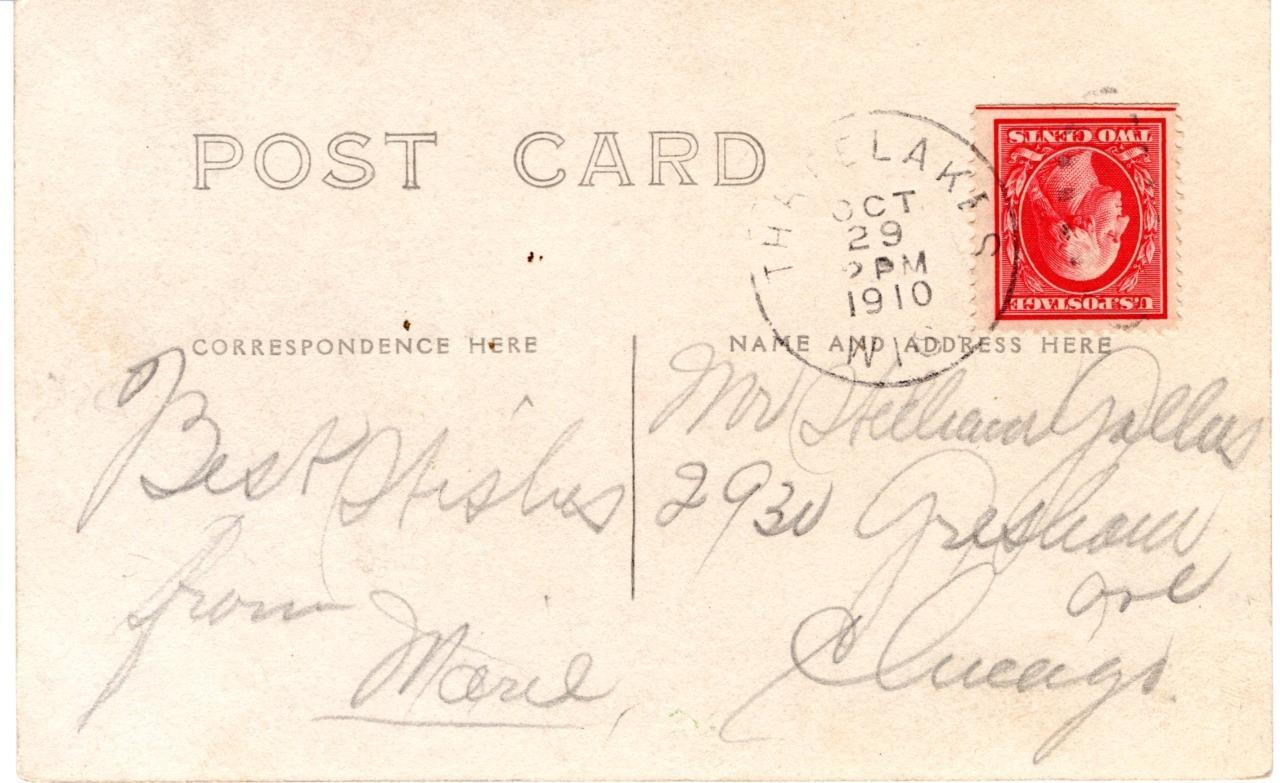 POST CARD
THREE LAKES
OCT
29
2 PM
1910
WIS
TWO CENTS
U.S. POSTAGE
CORRESPONDENCE HERE
NAME AND ADDRESS HERE
Best Wishes
from
Marie
Mr William
2930 Gresham
ave
Chicago.